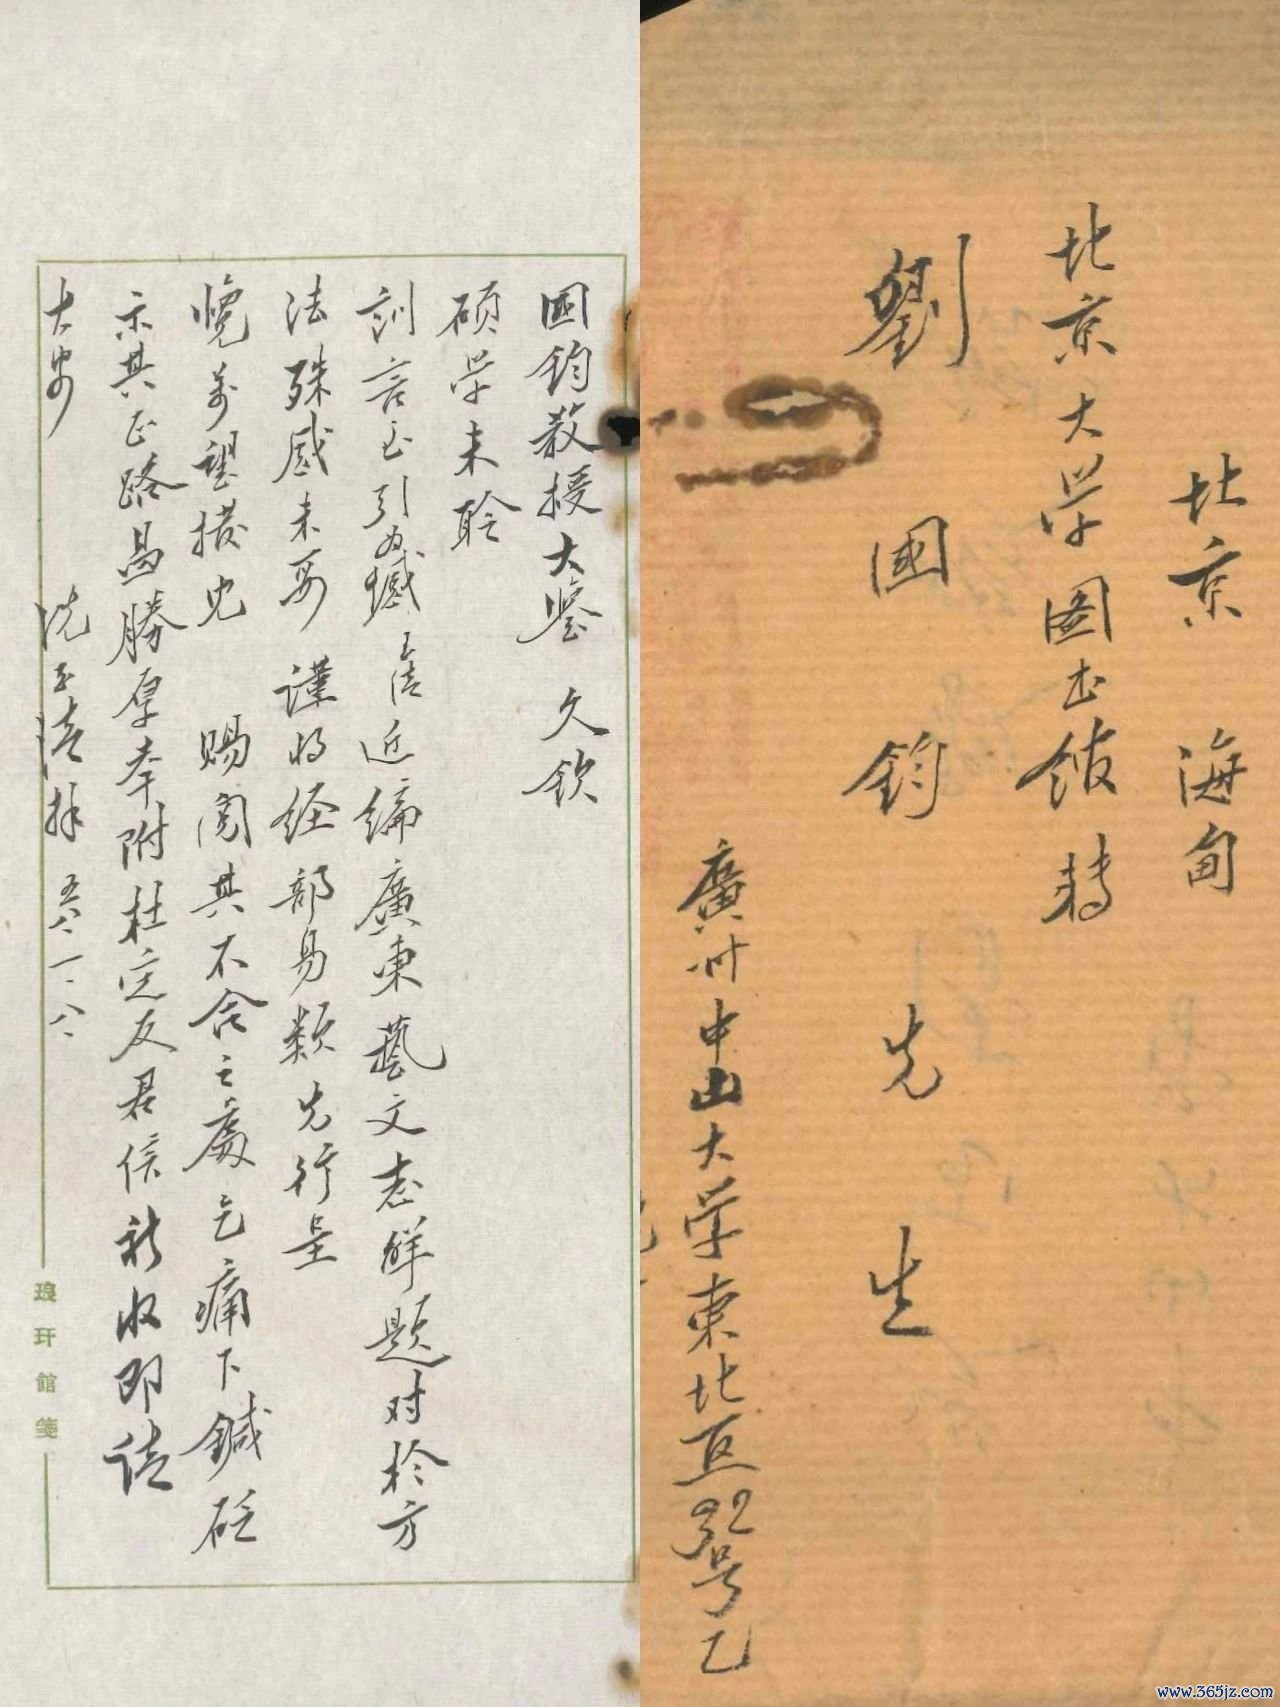 國鈞教授大鑒 久欽
碩学未聆
訓言至引為憾 玉清近编廣東藝文志解题对於方
法殊感未妥 謹将经部易類先行呈
懒 萬望撥冗 賜阅其不合之處乞痛下鍼砭
示其正路曷勝厚幸附杜定友君信祈收即请
大安
冼玉清拜 五八、一、八、
琅玕館箋
北京 海甸
北京大学圖书馆转
劉國鈞先生
廣州中山大学東北区32号乙
www.365jz.com